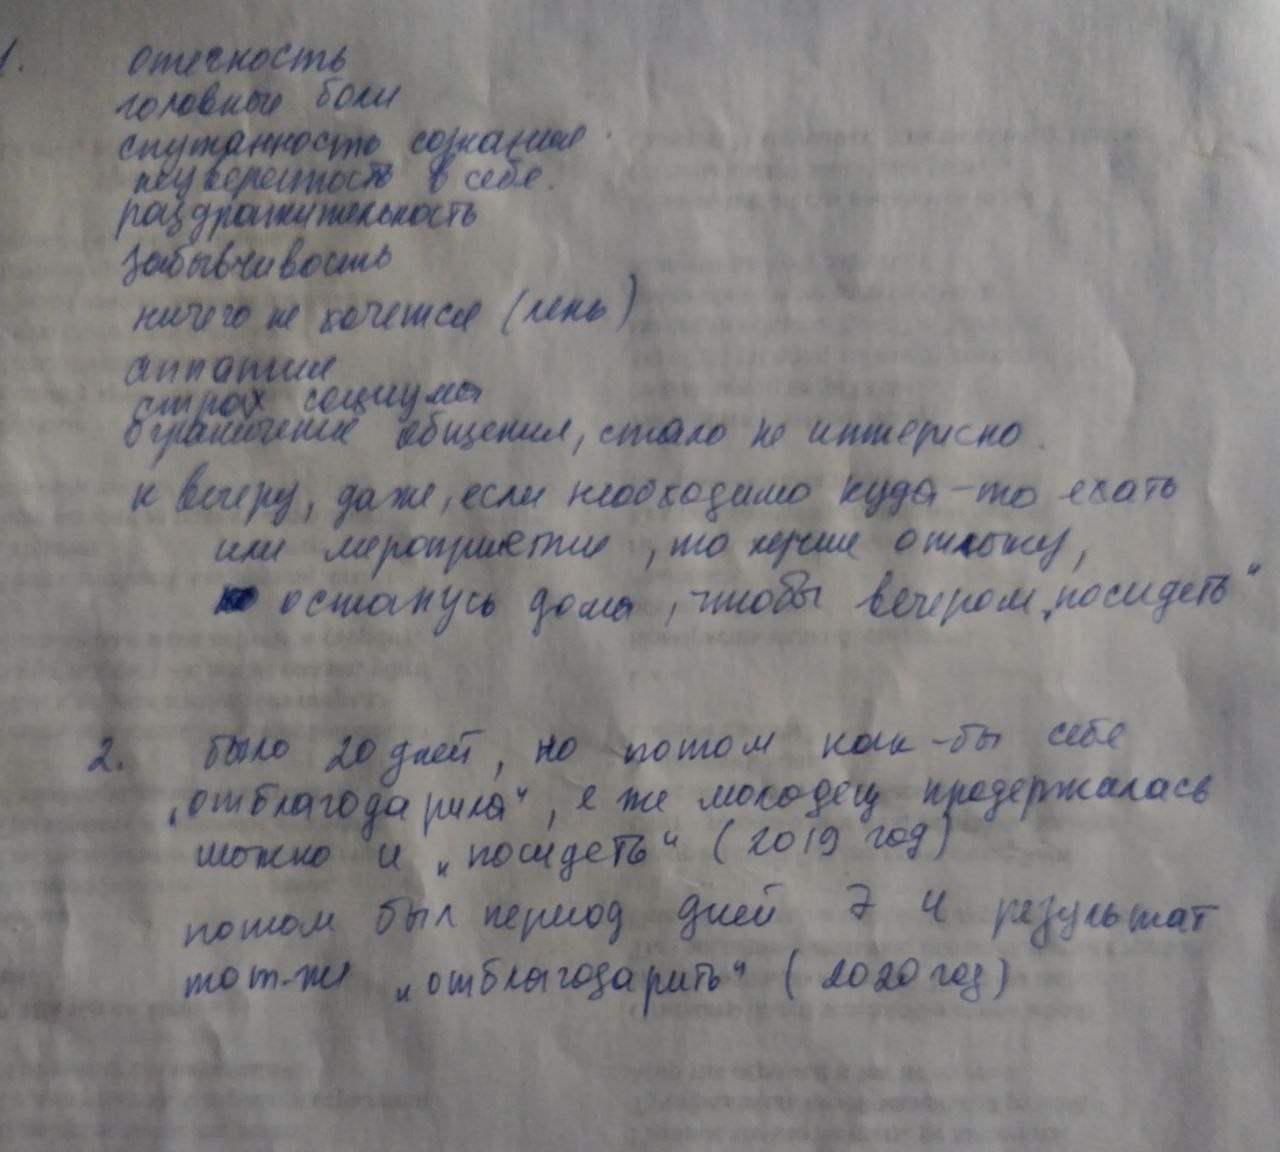 1. отечность
головные боли
спутанность сознания
неуверенность в себе.
раздражительность
забывчивость
ничего не хочется (лень)
аппатия
страх социума
ограничение общения, стало не интересно.
к вечеру, даже, если необходимо куда-то ехать
или мероприятие, то лучше отложу,
останусь дома, чтобы вечером „посидеть"
2. было 20 дней, но потом как-бы себе
„отблагодарила", я же молодец продержалась
можно и „посидеть" (2019 год)
потом был период дней 7 и результат
тот-же „отблагодарить" (2020 год)